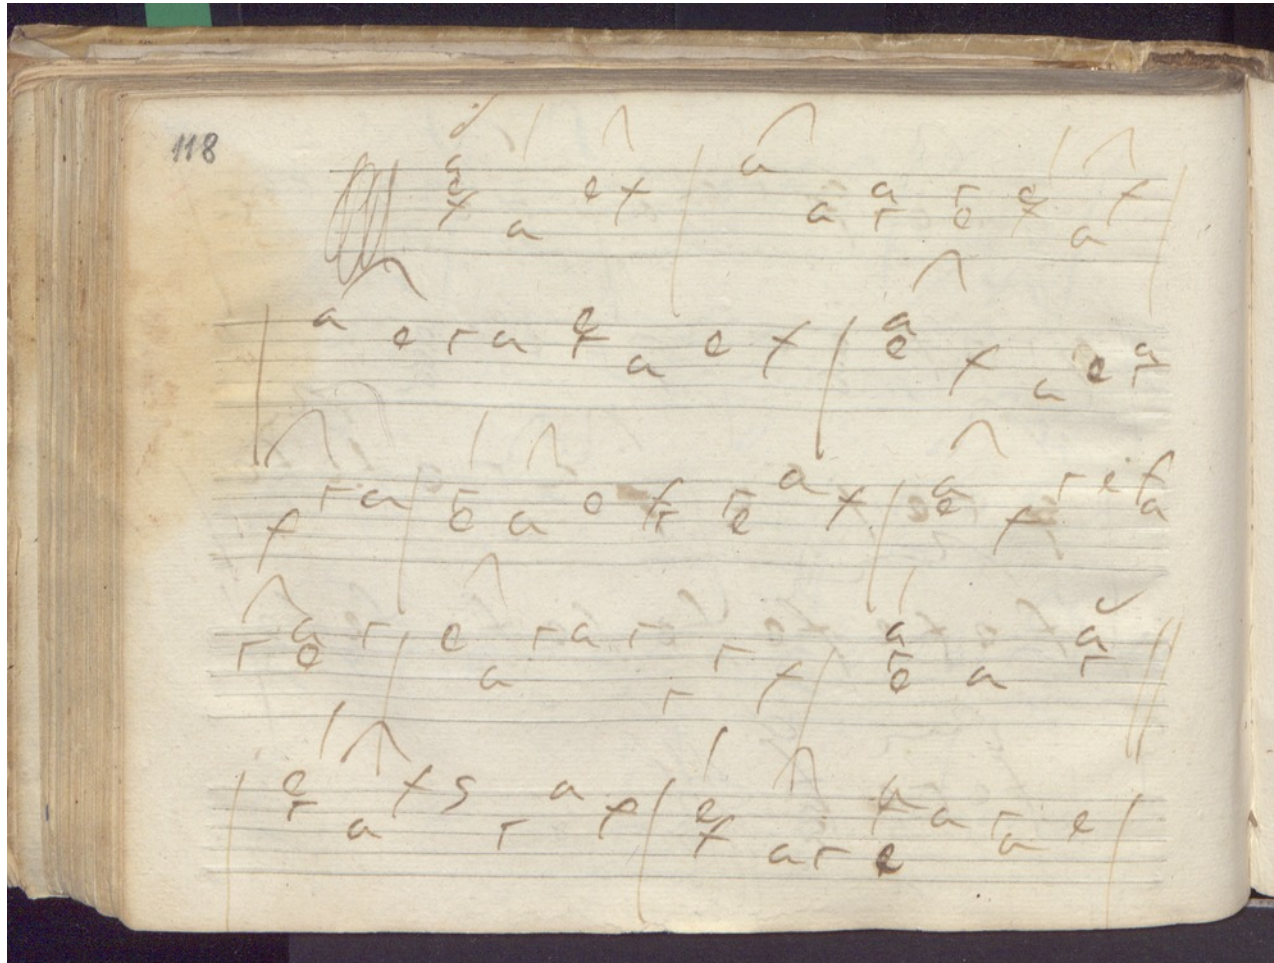 118
a e f a e f a a a r r e e f a f
a e r a e f a e f a e f a e a r
f r a r e a e f r r e a f a e f r e f a
r a e r e a r a r r r f a r e a a r
e r a f s r a f e f a r f a e a r a e